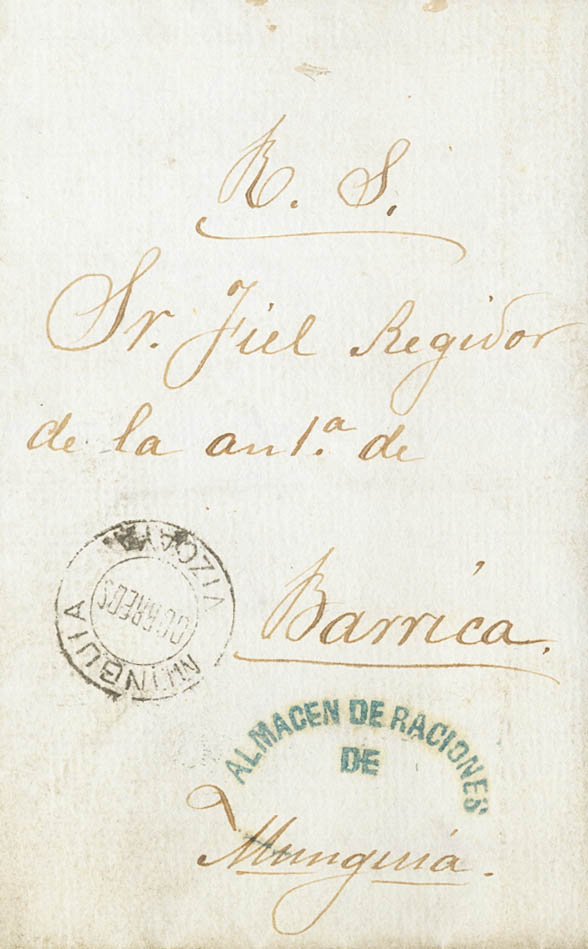 R. S.
Sr. Fiel Regidor
de la an1.ª de
Barrica.
MUNGUIA
VIZCAYA
CORREOS
ALMACEN DE RACIONES
DE
Munguía.